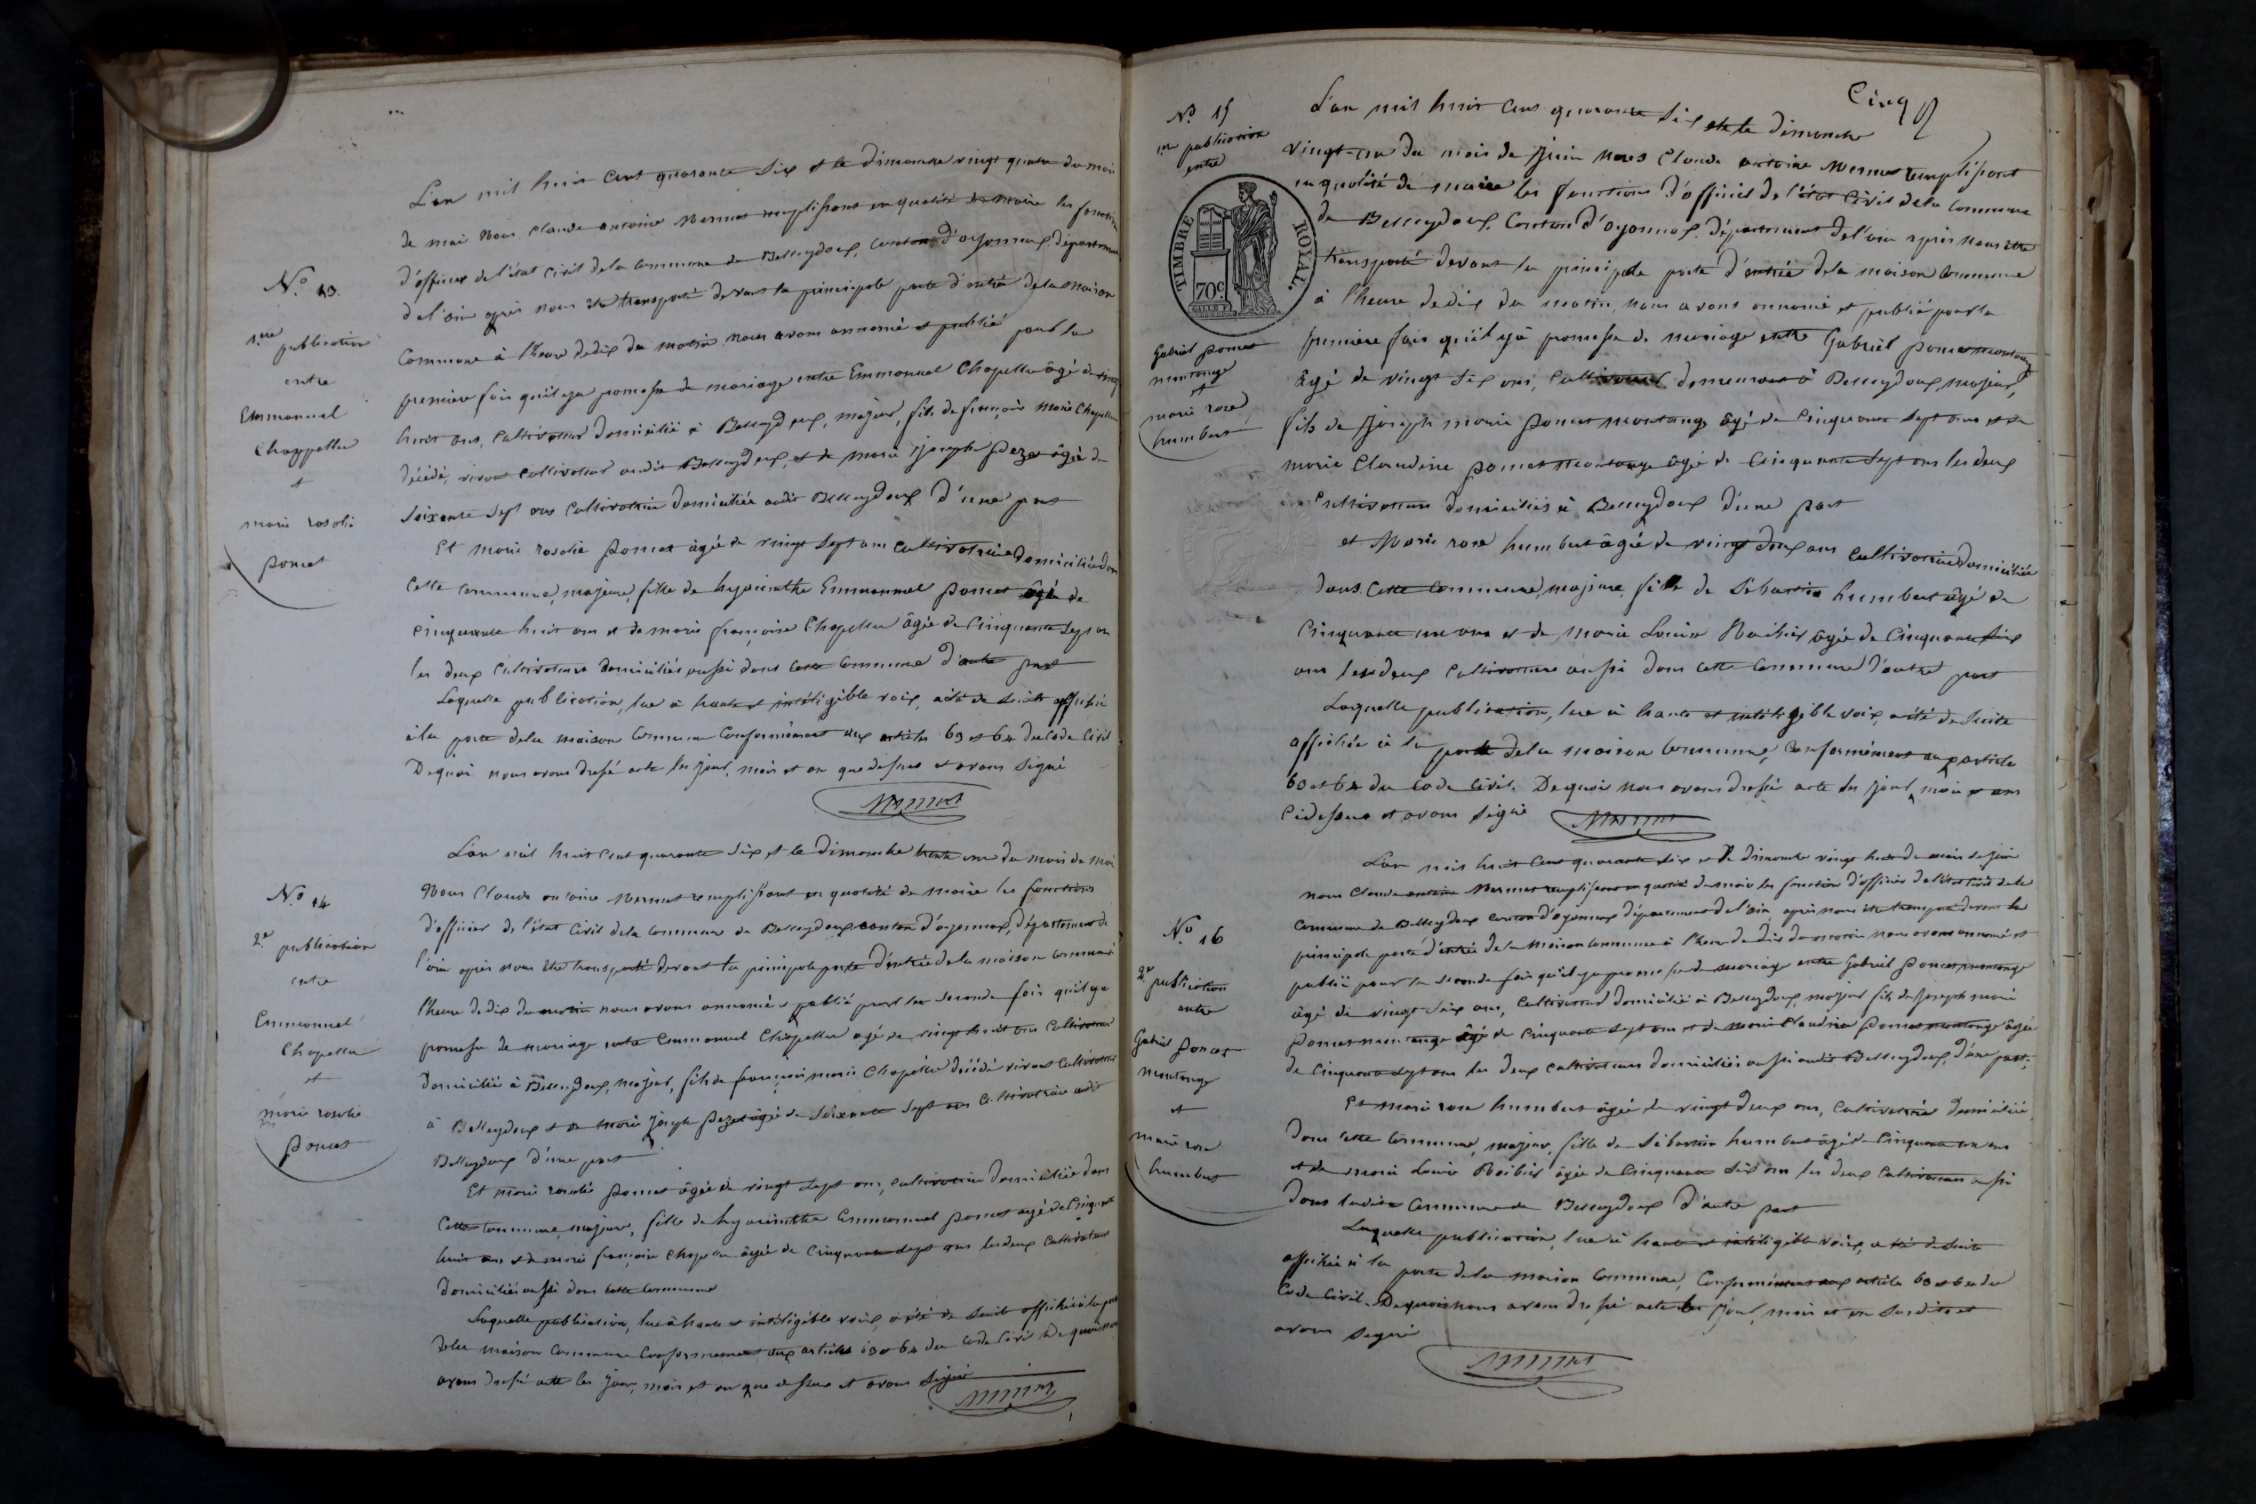 N.º 13.
1.ère publication
entre
Emmanuel
Chappellu
et
marie rosalie
poncet
L'an mil huit cent quarante six et le dimanche vingt quatre du mois
de mai Nous Claude antoine Mermet remplissant en qualité de maire les fonctions
d'officier de l'état civil de la commune de Belleydoux, canton d'oyonnax, département
de l'ain après nous être transporté devant la principale porte d'entrée de la maison
Commune à l'heure de dix du matin nous avons annoncé et publié pour la
première fois qu'il y a promesse de mariage entre Emmanuel Chapellu âgé de vingt
huit ans, cultivateur domicilié à Belleydoux, majeur, fils de françois marie Chapellu
décédé, vivant cultivateur audit Belleydoux, et de marie joseph pezet âgée de
soixante sept ans cultivatrice domiciliée audit Belleydoux d'une part
Et marie rosalie poncet âgée de vingt sept ans cultivatrice domiciliée dans
cette commune, majeure, fille de hyacinthe Emmanuel poncet âgé de
cinquante huit ans et de marie françoise Chapellu âgée de cinquante sept ans
les deux cultivateurs domiciliés aussi dans cette commune d'autre part
Laquelle publication, lue à haute et intéligible voix, a été de suite affichée
à la porte de la maison commune conformément aux articles 63 et 64 du Code Civil
De quoi nous avons dressé acte les jour, mois et an que dessus et avons signé
Mermet
N.º 14
2.e publication
entre
Emmanuel
Chapellu
et
marie rosalie
poncet
L'an mil huit cent quarante six et le dimanche trente un du mois de mai
Nous Claude antoine Mermet remplissant en qualité de maire les fonctions
d'officier de l'état civil de la commune de Belleydoux canton d'oyonnax, département de
l'ain après nous être transporté devant la principale porte d'entrée de la maison commune
l'heure de dix du matin nous avons annoncé et publié pour la seconde fois qu'il y a
promesse de mariage entre Emmanuel Chapellu agé de vingt huit ans cultivateur
domicilié à Belleydoux, majeur, fils de françois marie Chapellu décédé vivant cultivateur
à Belleydoux et de marie joseph pezet agée de soixante sept ans cultivatrice audit
Belleydoux d'une part
Et marie rosalie poncet âgée de vingt sept ans, cultivatrice domiciliée dans
cette commune, majeure, fille de hyacinthe Emmanuel poncet agé de cinquante
huit ans et de marie françoise Chapellu âgée de cinquante sept ans les deux cultivateurs
domiciliés aussi dans cette commune
Laquelle publication, lue à haute et intéligible voix, a été de suite affichée à la porte
de la maison commune conformément aux articles 63 et 64 du Code Civil De quoi nous
avons dressé acte les jour, mois et an que dessus et avons signé
Mermet
Cinq
N.º 15
1.ère publication
entre
TIMBRE ROYAL.
70c
Gabriel poncet
montange
et
marie rose
humbert
L'an mil huit cent quarante six et le dimanche
vingt-un du mois de juin nous Claude antoine Mermet remplissant
en qualité de maire les fonctions d'officier de l'état civil de la commune
de Belleydoux, Canton d'oyonnax, département de l'ain après nous être
transporté devant la principale porte d'entrée de la maison commune
à l'heure de dix du matin, nous avons annoncé et publié pour la
première fois qu'il y a promesse de mariage entre Gabriel poncet montange
âgé de vingt six ans, cultivateur demeurant à Belleydoux, majeur,
fils de joseph marie poncet montange âgé de cinquante sept ans et de
marie Claudine poncet montange âgée de cinquante sept ans les deux
cultivateurs domiciliés à Belleydoux d'une part
et Marie rose humbert âgée de vingt deux ans cultivatrice domiciliée
dans cette commune, majeure fille de Sébastien humbert âgé de
cinquante un ans et de marie Louise Roibier âgée de cinquante six
ans les deux cultivateurs aussi dans cette commune d'autre part
Laquelle publication, lue à haute et intéligible voix, a été de suite
affichée à la porte de la maison commune, conformément aux articles
63 et 64 du Code Civil. De quoi nous avons dressé acte les jour, mois et an
ci dessus et avons signé Mermet
N.º 16
2.e publication
entre
Gabriel poncet
montange
et
marie rose
humbert
L'an mil huit cent quarante six et le dimanche vingt huit du mois de juin
nous Claude antoine Mermet remplissant en qualité de maire les fonctions d'officier de l'état civil de la
commune de Belleydoux canton d'oyonnax département de l'ain, après nous être transporté devant la
principale porte d'entrée de la maison commune à l'heure de dix du matin nous avons annoncé et
publié pour la seconde fois qu'il y a promesse de mariage entre Gabriel poncet montange
âgé de vingt six ans, cultivateur domicilié à Belleydoux, majeur fils de joseph marie
poncet montange âgé de cinquante sept ans et de marie Claudine poncet montange âgée
de cinquante sept ans les deux cultivateurs domiciliés aussi audit Belleydoux, d'une part,
Et marie rose humbert âgée de vingt deux ans, cultivatrice domiciliée
dans cette commune, majeure, fille de Sébastien humbert âgé de cinquante un ans
et de marie Louise Roibier âgée de cinquante six ans les deux cultivateurs aussi
dans la dite commune de Belleydoux d'autre part
Laquelle publication, lue à haute et intéligible voix, a été de suite
affichée à la porte de la maison commune, conformément aux articles 63 et 64 du
Code Civil. De quoi nous avons dressé acte les jour, mois et an susdits et
avons signé
Mermet